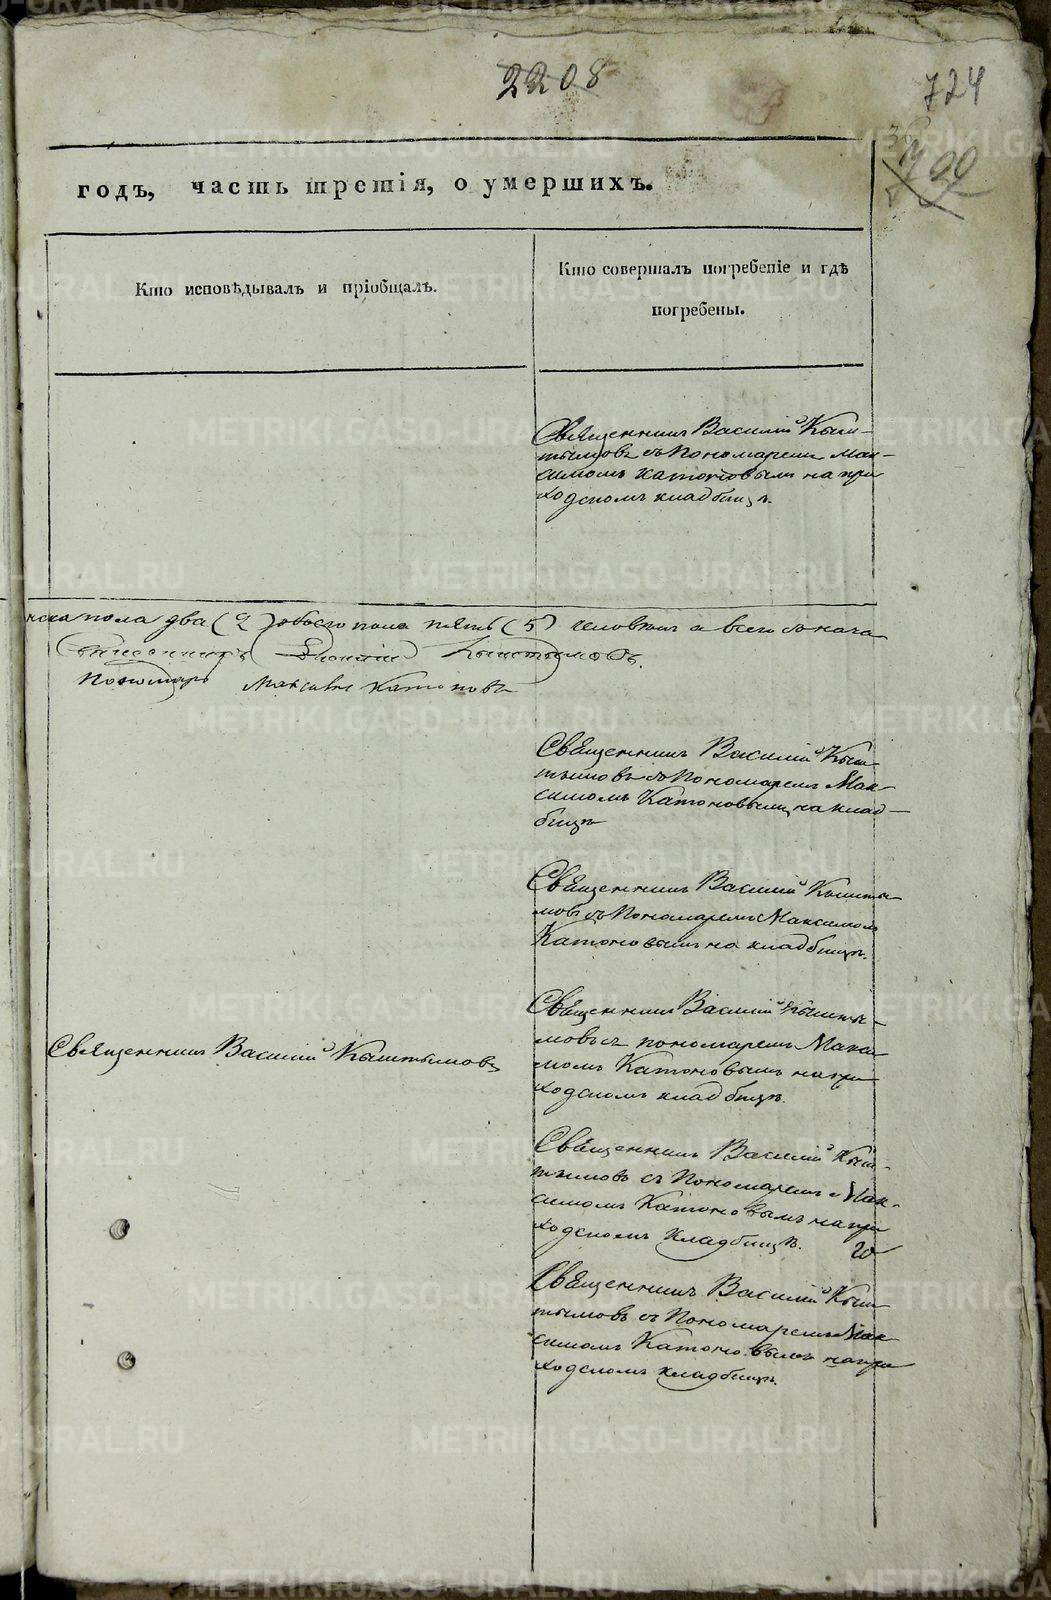 2208
724
годъ, часть третія, о умершихъ.
Кто исповѣдывалъ и пріобщалъ.
Кто совершалъ погребеніе и гдѣ
погребены.
Священникъ Василій Кыш-
тымовъ съ Пономаремъ Мак-
симомъ Катоновымъ на при
ходскомъ кладбищѣ.
пола два (2) обоего пола пять (5) человѣкъ а всего съ нача
Кыштымовъ.
Пономарь Максимъ Катоновъ
Священникъ Василій Кыш-
тымовъ съ Пономаремъ Мак-
симомъ Катоновымъ на клад-
бищѣ
Священникъ Василій Кышты
мовъ съ Пономаремъ Максимом
Катоновымъ на кладбищѣ.
Священникъ Василій Кышты-
мовъ съ пономаремъ Макси
Священникъ Василій Кыштымовъ
момъ Катоновымъ на при
ходскомъ кладбищѣ.
Священникъ Василій Кыш-
тымовъ съ Пономаремъ Мак-
симомъ Катоновымъ на при
ходскомъ кладбищѣ.
Священникъ Василій Кыш
тымовъ съ Пономаремъ Мак
симомъ Катоновымъ на при
ходскомъ кладбищѣ.
METRIKI.GASO-URAL.RU